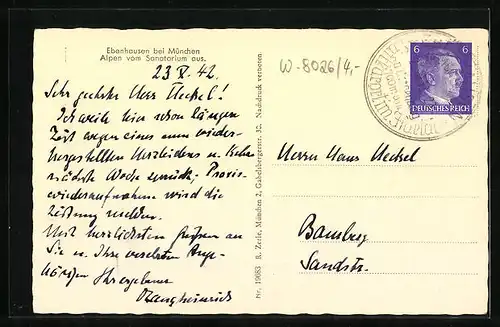 Ebenhausen bei München
Alpen vom Sanatorium aus.
23 V. 42.
W-8026/4,-
6 6
DEUTSCHES REICH
Sehr geehrter Herr Heckel!
Ich weile hier schon längere
Zeit wegen eines nun wieder-
hergestellten Herzleidens u. kehre
nächste Woche zurück, Praxis-
wiederaufnahme wird die
Zeitung melden.
Mit herzlichsten Grüßen an
Sie u. Ihre verehrten Ange-
hörigen Ihr ergebener
Nr. 19683 R. Zerle, München 2, Gabelsbergerstr. Nachdruck verboten
Herrn Hans Heckel
Bamberg
Sandstr.